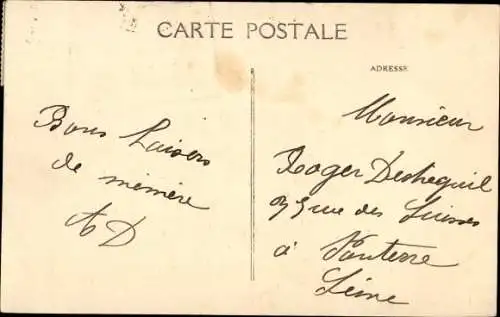 CARTE POSTALE
ADRESSE
Bons baisers
de mémère
AD
Monsieur
Roger
rue des Suisses
à Nanterre
Seine